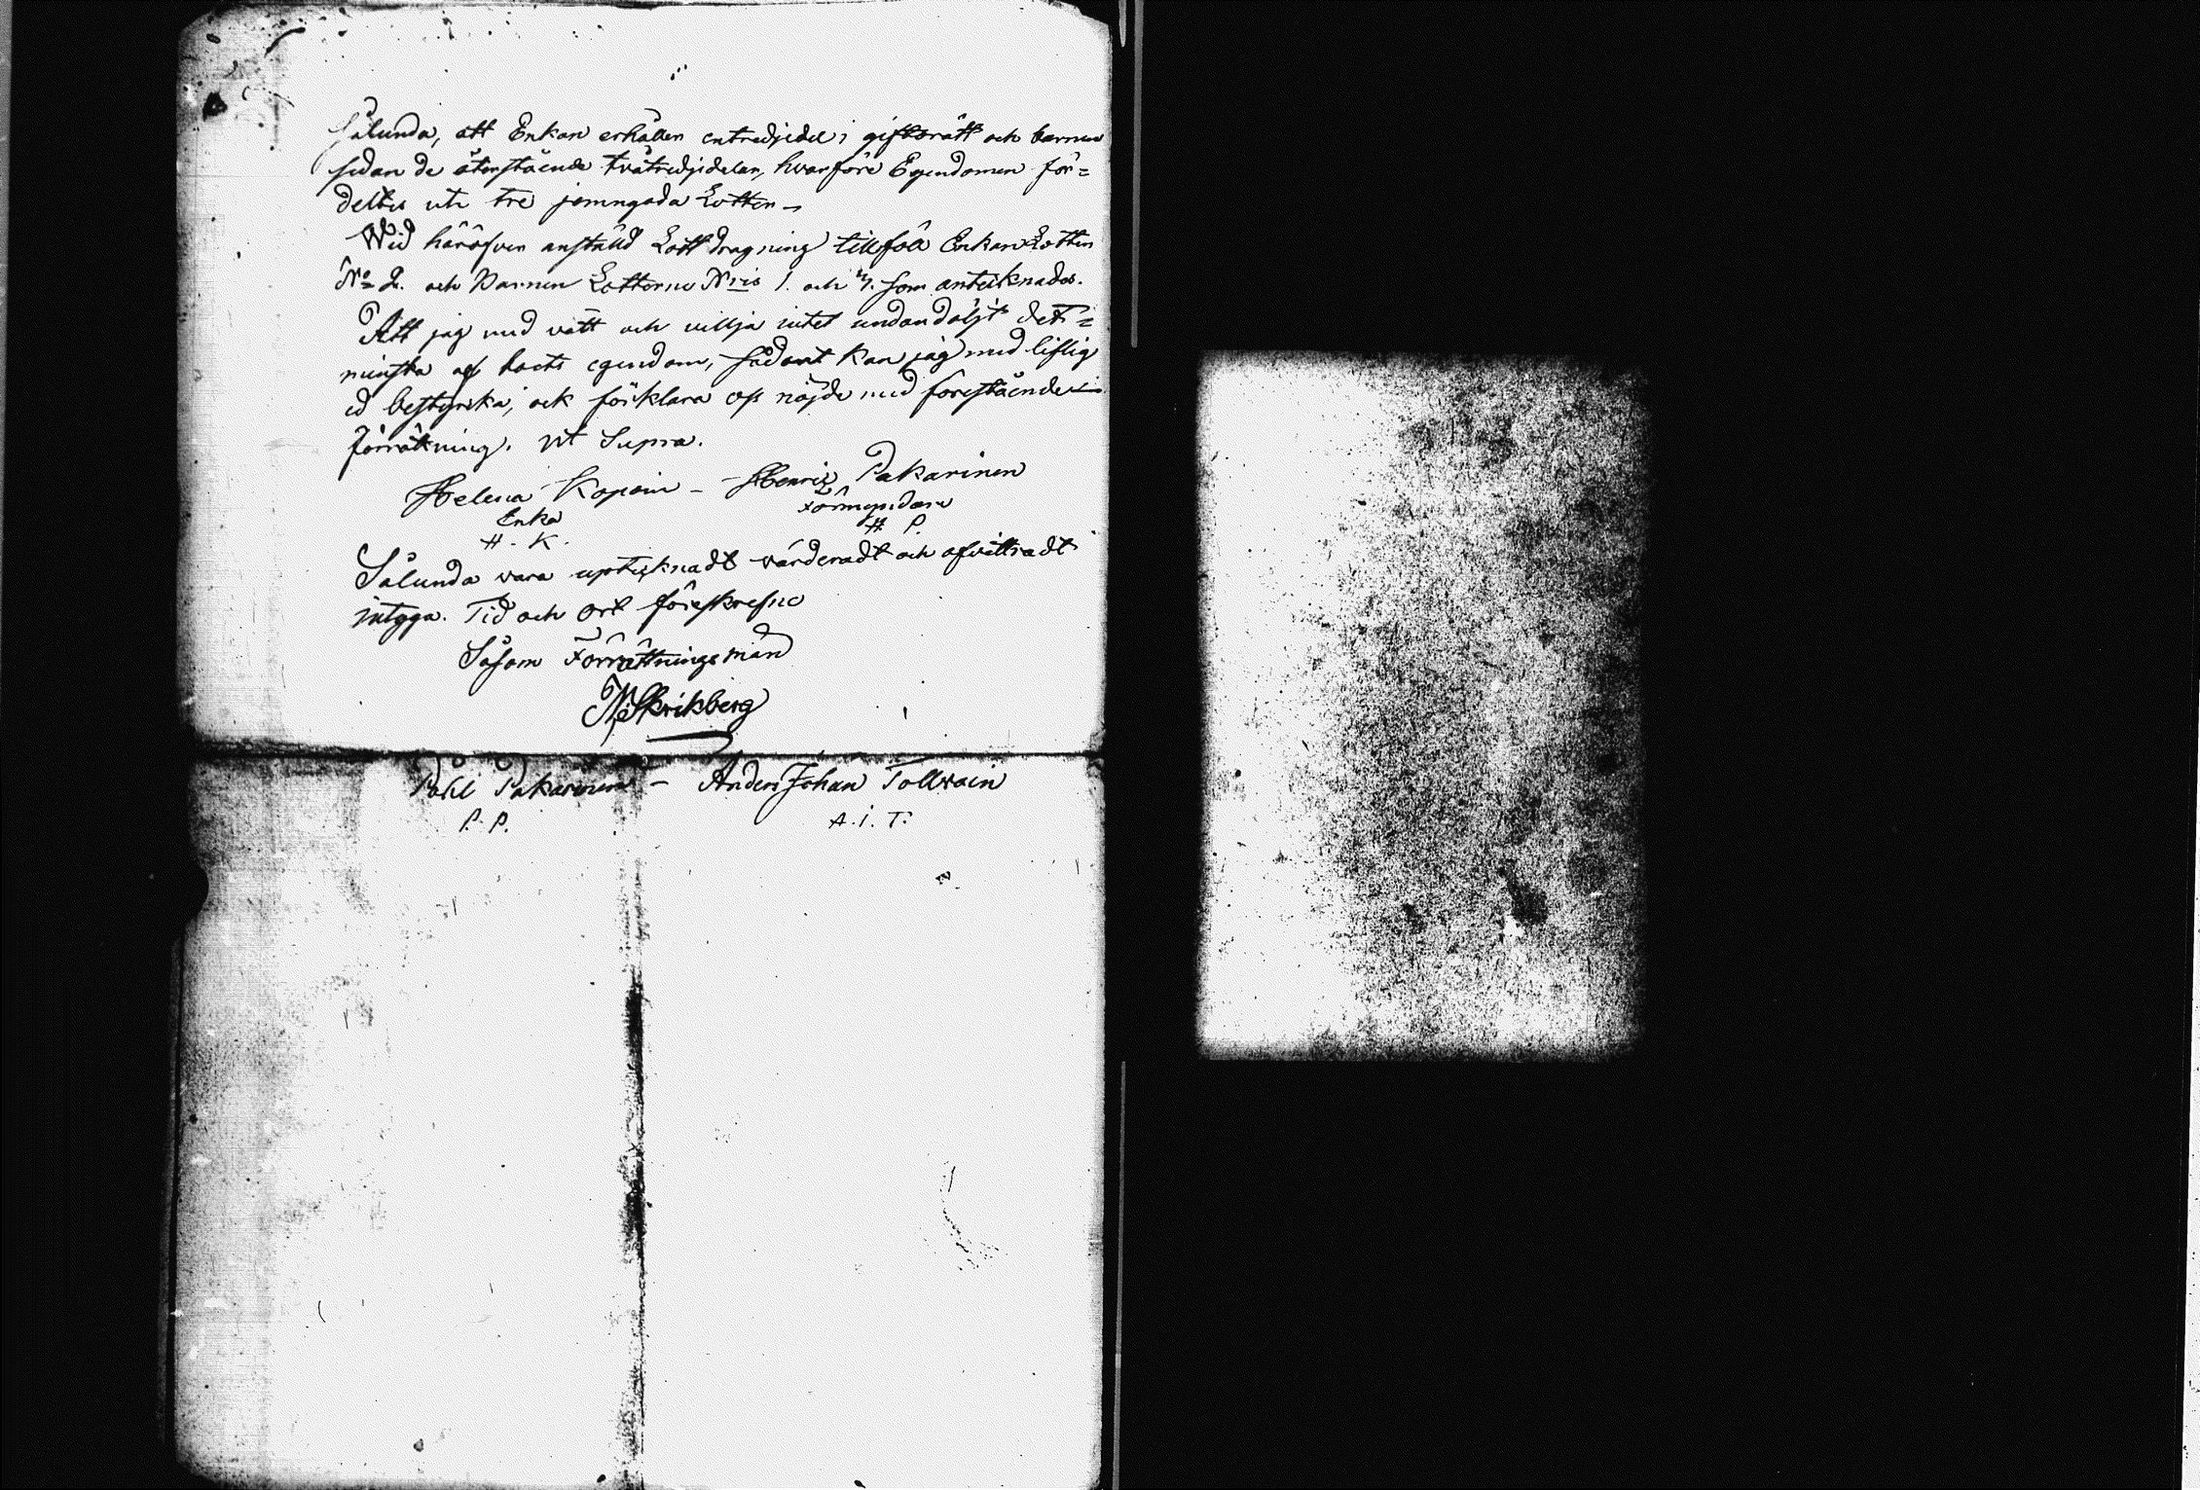 Sålunda, att Enkan erhåller entredjedel i giftorätt och barnen
sedan de återstående tvåtredjedelar, hvarföre Egendomen för=
deltes uti tre jemngoda Lotter –
Wid häröfver anstäld Lottdragning tillföll Enkan Lotten
No 2. och Barnen Lotterne Nris 1. och 3. som antecknades.
Att jag med vett och villja intet undandöljt det
minsta af boets egendom, sådant kan jag med liflig
ed bestyrka, ock förklara os nöjde med förestående
förrätning. ut Supra.
Helena Kopoin – Henric Pakarinen
Enka Förmyndare
H. K. H. P.
Sålunda vara upteknadt värderadt och afvittradt
intyga. Tid och ort föreskrefne
Såsom Förrättningsman
Skrikberg
Påhl Pakarinen – Anders Johan Tollvain
P. P. A. I. T.